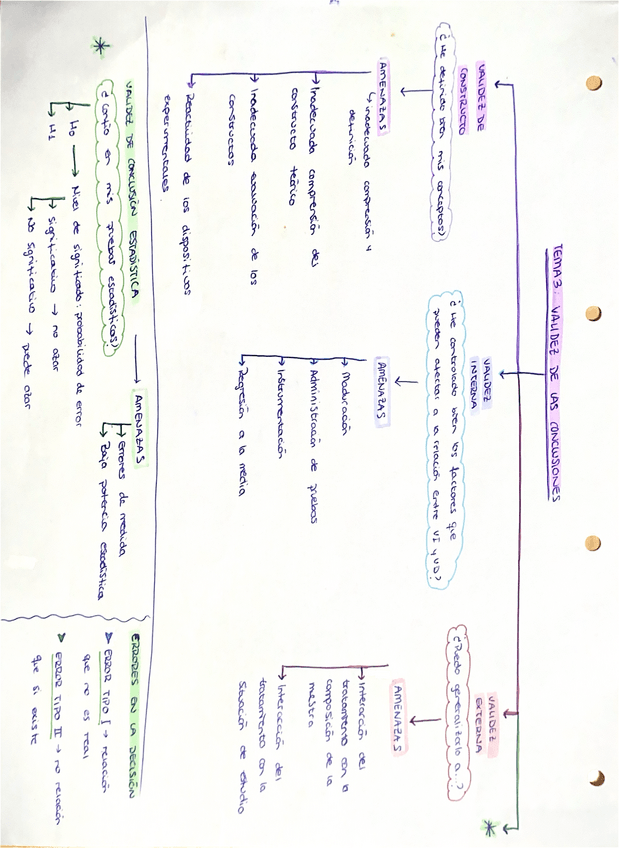 TEMA 3: VALIDEZ DE LAS CONCLUSIONES
VALIDEZ DE
CONSTRUCTO
¿He definido bien mis conceptos?
AMENAZAS
Inadecuada comprensión y
definición
Inadecuada comprensión del
constructo teórico
Inadecuada evaluación de los
constructos
Reactividad de los dispositivos
experimentales.
VALIDEZ
INTERNA
¿He controlado bien los factores que
pueden afectar a la relación entre VI y VD?
AMENAZAS
Maduración
Administración de pruebas
Instrumentación
Regresión a la media
VALIDEZ
EXTERNA
¿Puedo generalizarlo a...?
AMENAZAS
Interacción del
tratamiento con la
composición de la
muestra
Interacción del
tratamiento con la
situación de estudio
*
*
VALIDEZ DE CONCLUSIÓN ESTADÍSTICA → AMENAZAS
Errores de medida
Baja potencia estadística
¿Confío en mis pruebas estadísticas?
H0 → Nivel de significado: probabilidad de error
H1
Significativo → no azar
No significativo → puede azar
ERRORES EN LA DECISIÓN
ERROR TIPO I → relación
que no es real
ERROR TIPO II → no relación
que si existe